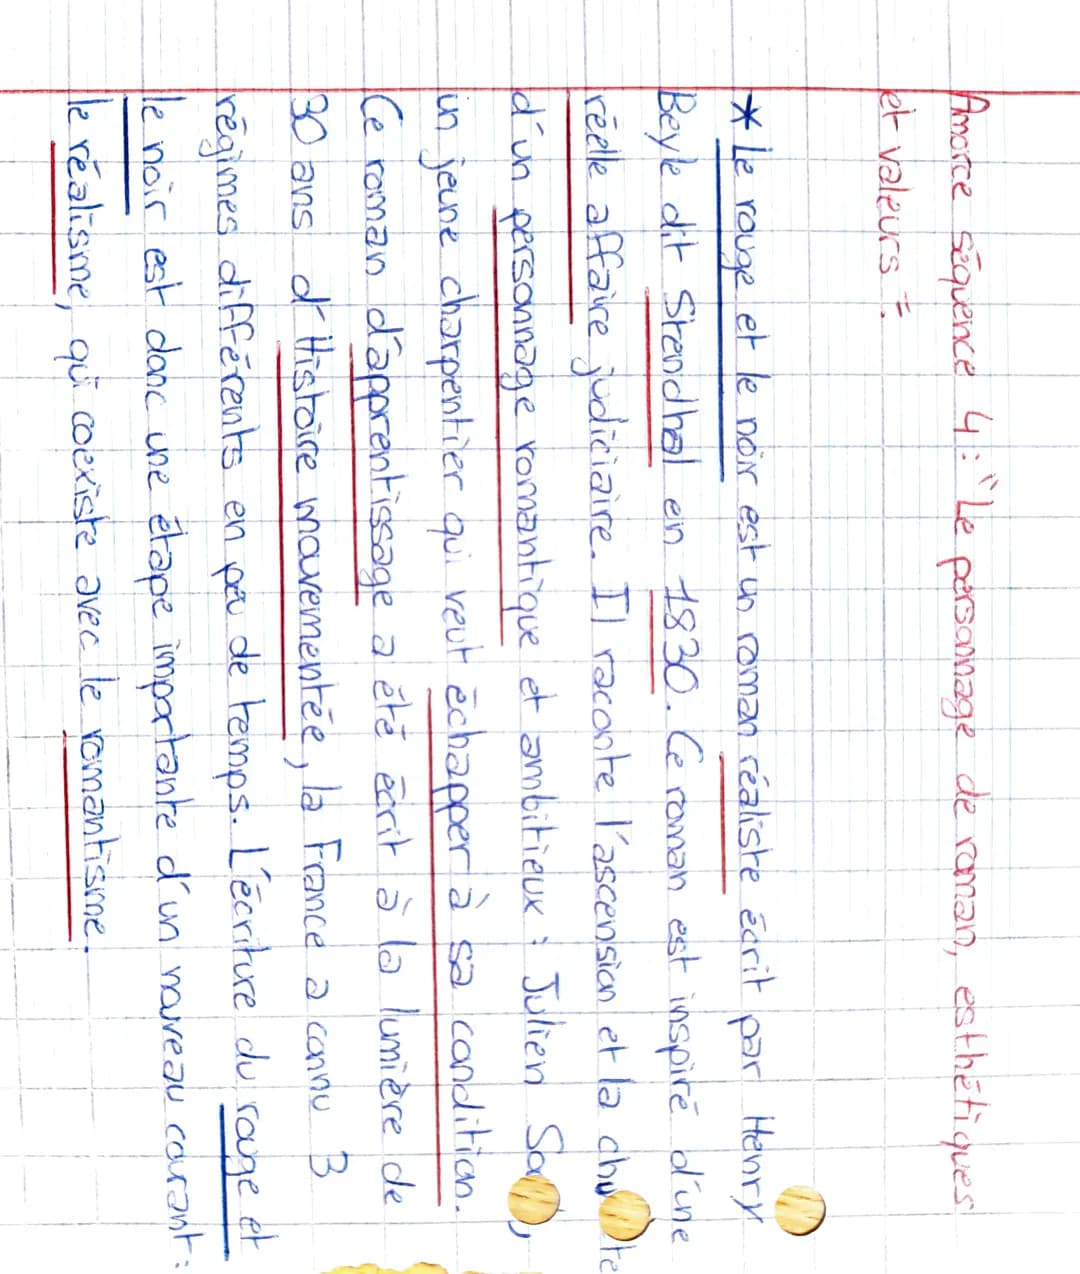 Amorce séquence 4 : "Le personnage de roman, esthétiques
et valeurs" :
* Le rouge et le noir est un roman réaliste écrit par Henry
Beyle dit Stendhal en 1830. Ce roman est inspiré d'une
réelle affaire judiciaire. Il raconte l'ascension et la chute
d'un personnage romantique et ambitieux : Julien
un jeune charpentier qui veut échapper à sa condition.
Ce roman d'apprentissage a été écrit à la lumière de
30 ans d'Histoire mouvementée, la France a connu 3
régimes différents en peu de temps. L'écriture du rouge et
le noir est donc une étape importante d'un nouveau courant :
le réalisme, qui coexiste avec le romantisme.